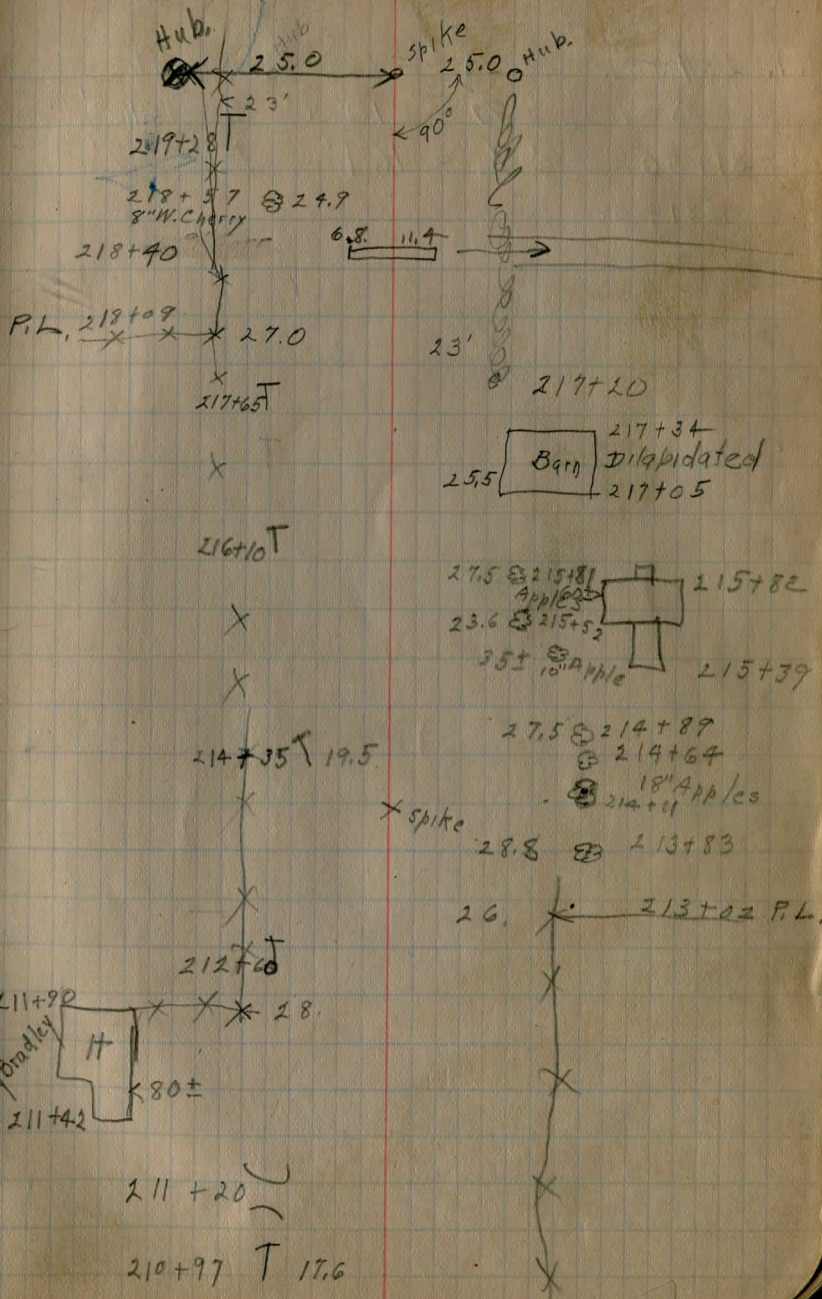 Hub. Hub Spike Hub.
25.0 25.0
23'
90°
219+28 T
218+57 24.9
8" W. Cherry
6.8. 11.4
218+40
P.L. 218+09 27.0
23'
217+20
217+65 T
217+34
Barn Dilapidated
25.5 217+05
216+10 T
27.5 215+81 215+82
Apples
23.6 215+52
35± 10" Apple 215+39
27.5 214+89
214+35 T 19.5 214+64
18" Apples
214+11
Spike
28.8 213+83
26. 213+02 P.L.
212+60 T
211+90 28.
Bradley H
80±
211+42
211+20
210+97 T 17.6